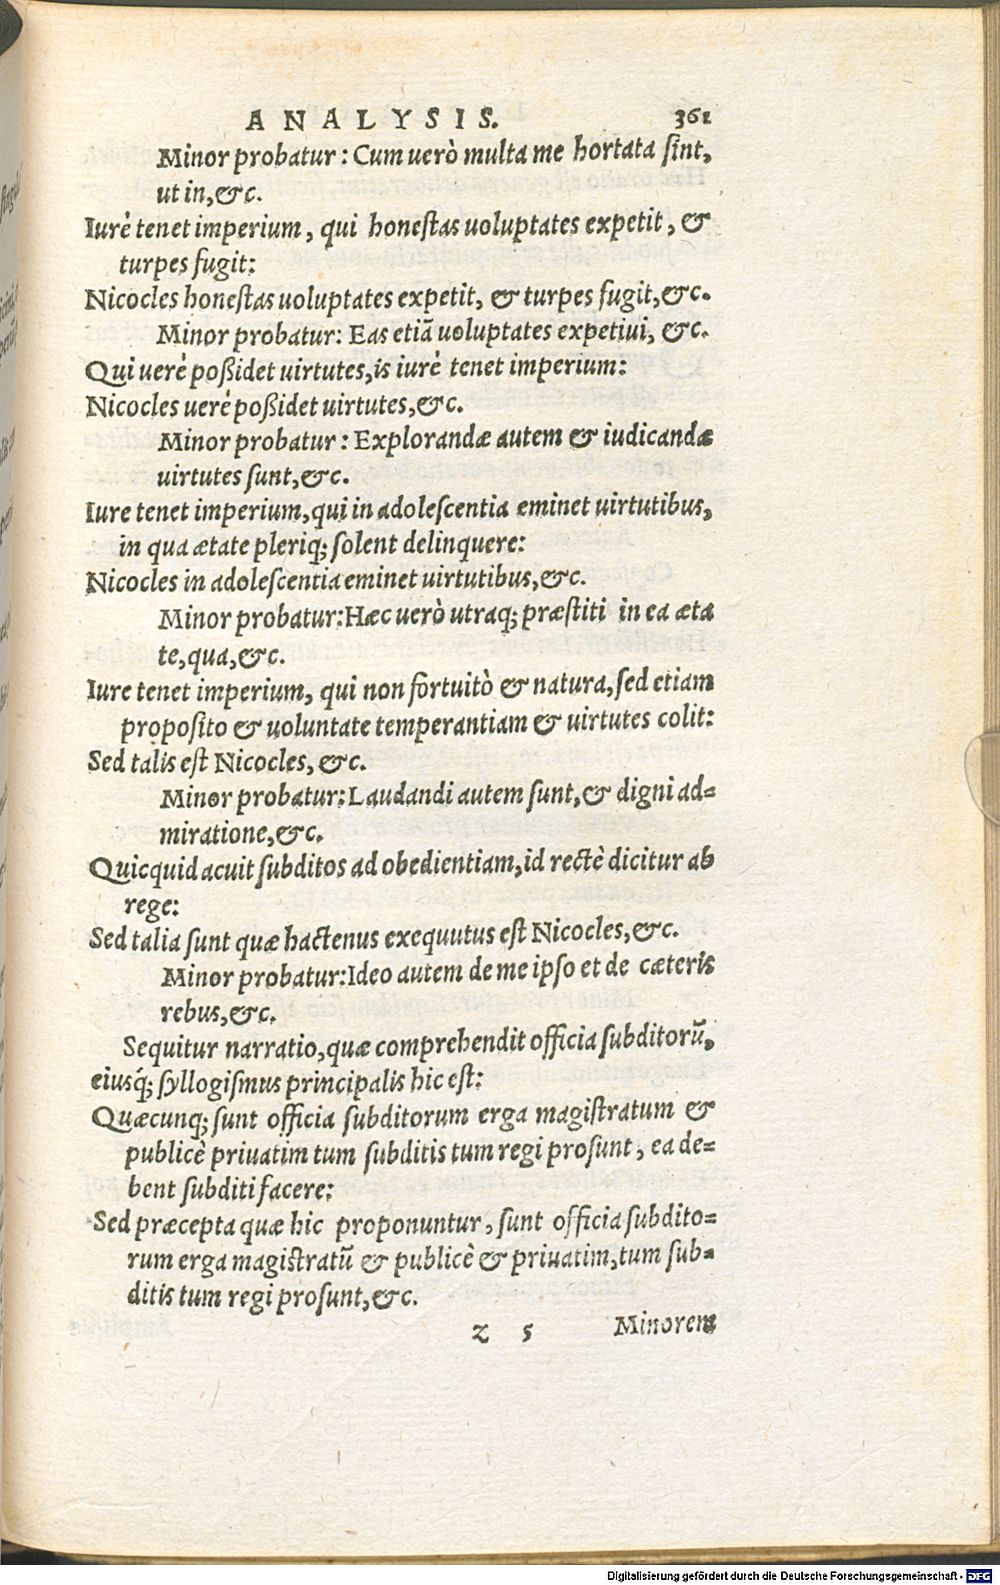 ANALYSIS. 361
Minor probatur: Cum uerò multa me hortata ſint,
ut in, &c.
Iurè tenet imperium, qui honeſtas uoluptates expetit, &
turpes fugit:
Nicocles honeſtas uoluptates expetit, & turpes fugit, &c.
Minor probatur: Eas etiã uoluptates expetiui, &c.
Qui uerè poßidet uirtutes, is iurè tenet imperium:
Nicocles uerè poßidet uirtutes, &c.
Minor probatur: Explorandæ autem & iudicandæ
uirtutes ſunt, &c.
Iure tenet imperium, qui in adoleſcentia eminet uirtutibus,
in qua ætate pleriq; ſolent delinquere:
Nicocles in adoleſcentia eminet uirtutibus, &c.
Minor probatur: Hæc uerò utraq; præſtiti in ea æta
te, qua, &c.
Iure tenet imperium, qui non fortuitò & natura, ſed etiam
propoſito & uoluntate temperantiam & uirtutes colit:
Sed talis eſt Nicocles, &c.
Minor probatur: Laudandi autem ſunt, & digni ad=
miratione, &c.
Quicquid acuit ſubditos ad obedientiam, id rectè dicitur ab
rege:
Sed talia ſunt quæ hactenus exequutus eſt Nicocles, &c.
Minor probatur: Ideo autem de me ipſo et de cæteris
rebus, &c.
Sequitur narratio, quæ comprehendit officia ſubditorũ,
eiusq́; ſyllogiſmus principalis hic eſt:
Quæcunq; ſunt officia ſubditorum erga magiſtratum &
publicè priuatim tum ſubditis tum regi proſunt, ea de=
bent ſubditi facere:
Sed præcepta quæ hic proponuntur, ſunt officia ſubdito=
rum erga magiſtratũ & publicè & priuatim, tum ſub=
ditis tum regi proſunt, &c.
z 5 Minorem
Digitalisierung gefördert durch die Deutsche Forschungsgemeinschaft - DFG